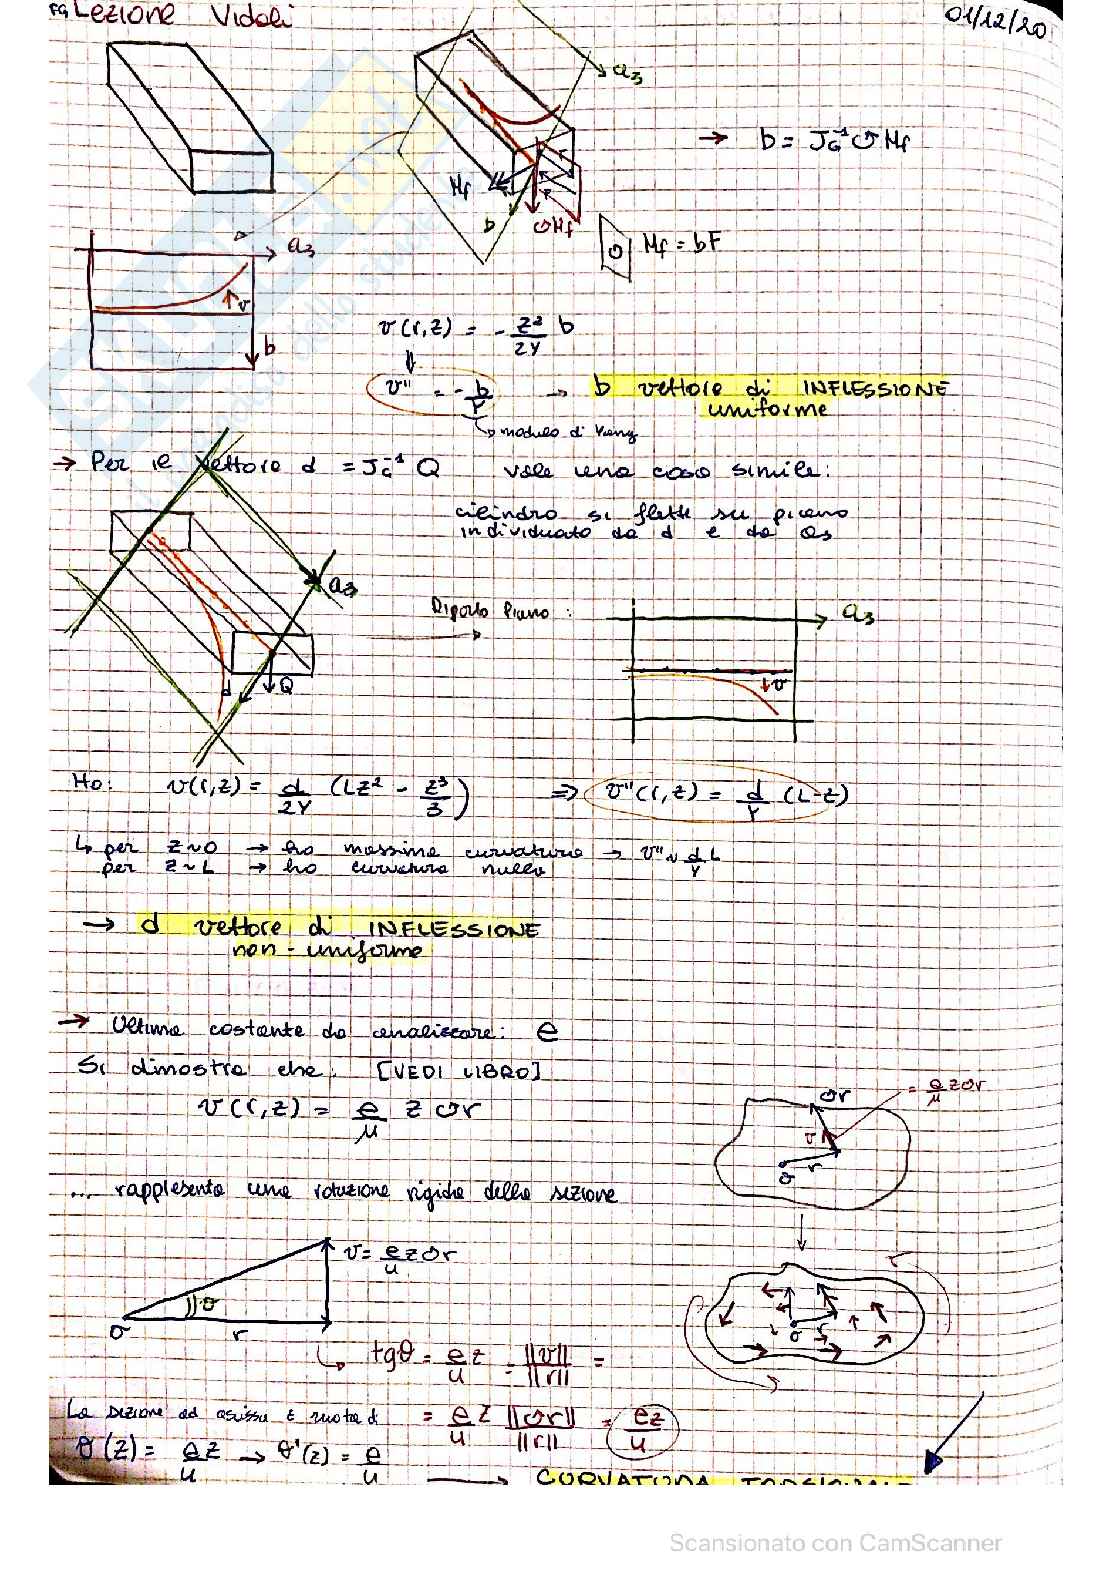 Lezione Vidoli
01/12/20
a₃
→ b = J_G⁻¹ ʊ M_f
M_f
b
ʊM_f
ʊ M_f = bF
a₃
v
b
v(r,z) = - z²/2Y b
⇓
v'' = - b/Y → b vettore di INFLESSIONE
uniforme
↳ modulo di Young
→ Per il vettore d = J_G⁻¹ Q vale una cosa simile:
cilindro si flette su piano
individuato da d e da a₃
a₃
d
Q
Riporto Piano:
a₃
v
Ho: v(r,z) = d/2Y (Lz² - z³/3) ⇒ v''(r,z) = d/Y (L-z)
↳ per z∼0 → ho massima curvatura → v''∼ d/Y L
per z∼L → ho curvatura nulla
→ d vettore di INFLESSIONE
non-uniforme
→ Ultima costante da analizzare: e
Si dimostra che: [VEDI LIBRO]
v(r,z) = e/μ z ʊr
ʊr
= e/μ zʊr
v
r
o
... rappresenta una rotazione rigida della sezione
v = e/μ zʊr
θ
o
r
o
r
↳ tgθ = e/μ z = ||v||/||r|| =
La sezione ad ascissa z ruota di = e/μ z ||ʊr||/||r|| = ez/μ
θ(z) = e/μ z → θ'(z) = e/μ → CURVATURA TORSIONALE
Scansionato con CamScanner